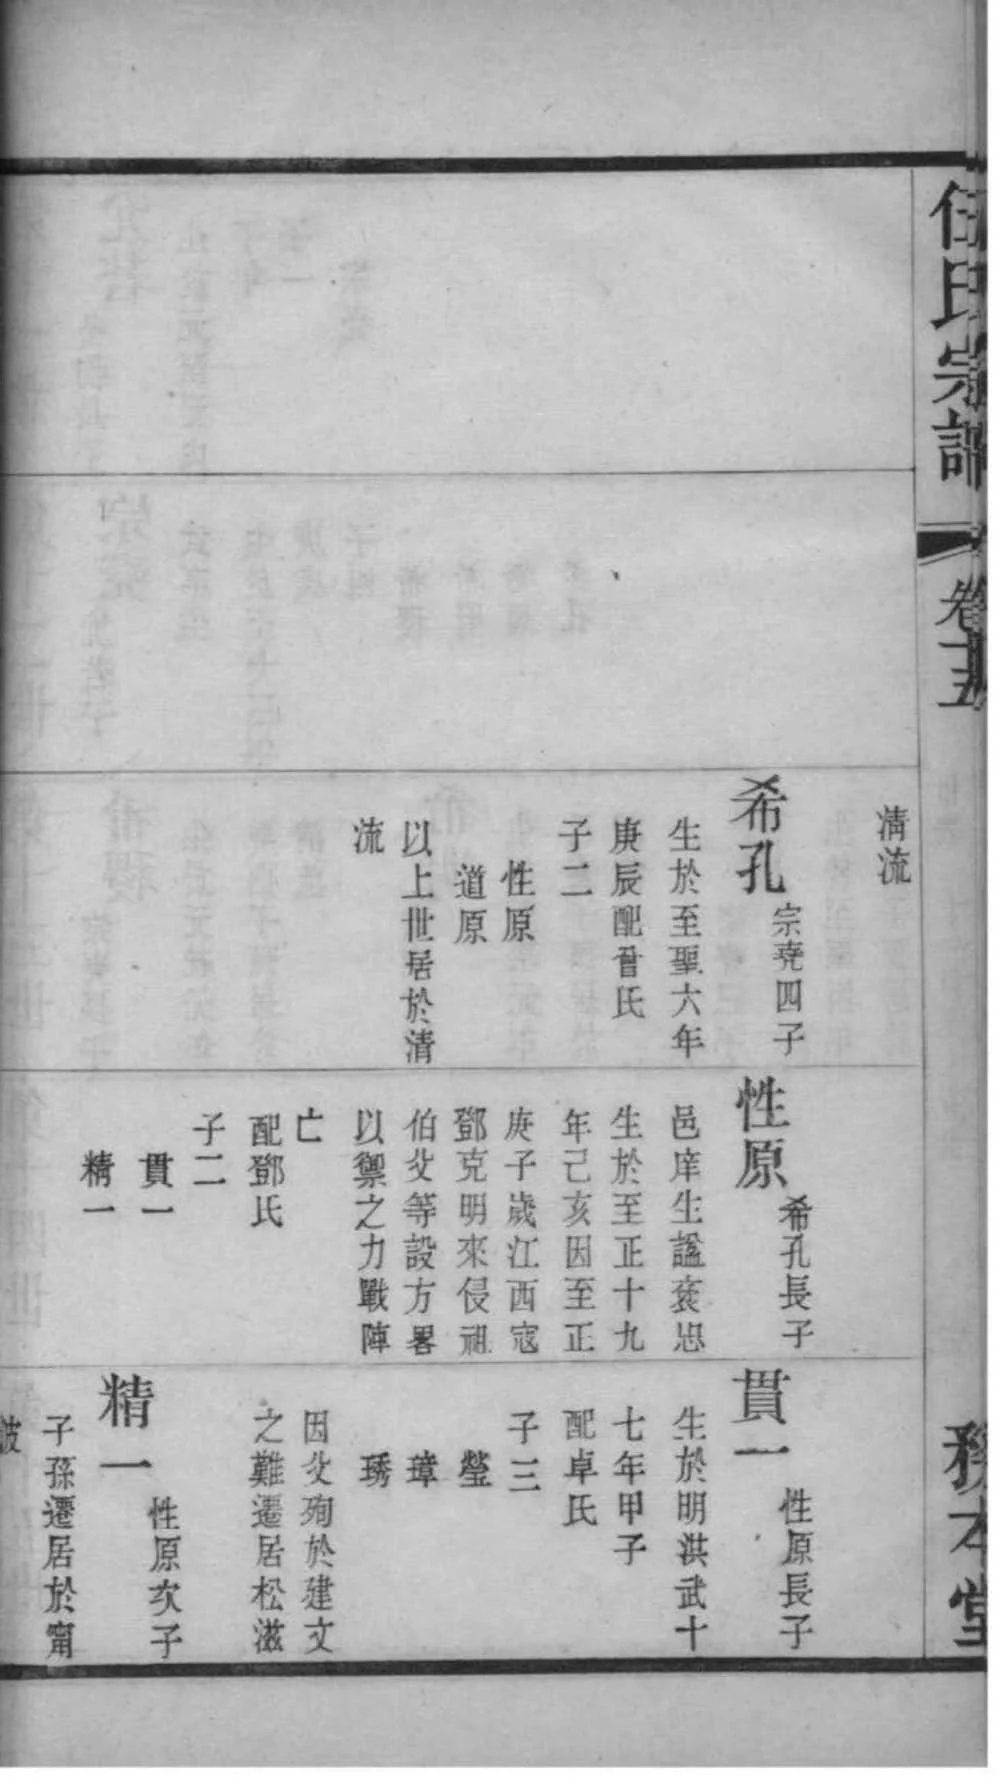 伍氏宗譜
卷十五
務本堂
清流
希孔
宗堯四子
生於至聖六年
庚辰配曾氏
子二
性原
道原
以上世居於清
流
性原
希孔長子
邑庠生謚袞忠
生於至正十九
年己亥因至正
庚子歲江西寇
鄧克明來侵祖
伯父等設方畧
以禦之力戰陣
亡
配鄧氏
子二
貫一
精一
貫一
性原長子
生於明洪武十
七年甲子
配卓氏
子三
瑩
璋
琇
因父殉於建文
之難遷居松滋
精一
性原次子
子孫遷居於甯